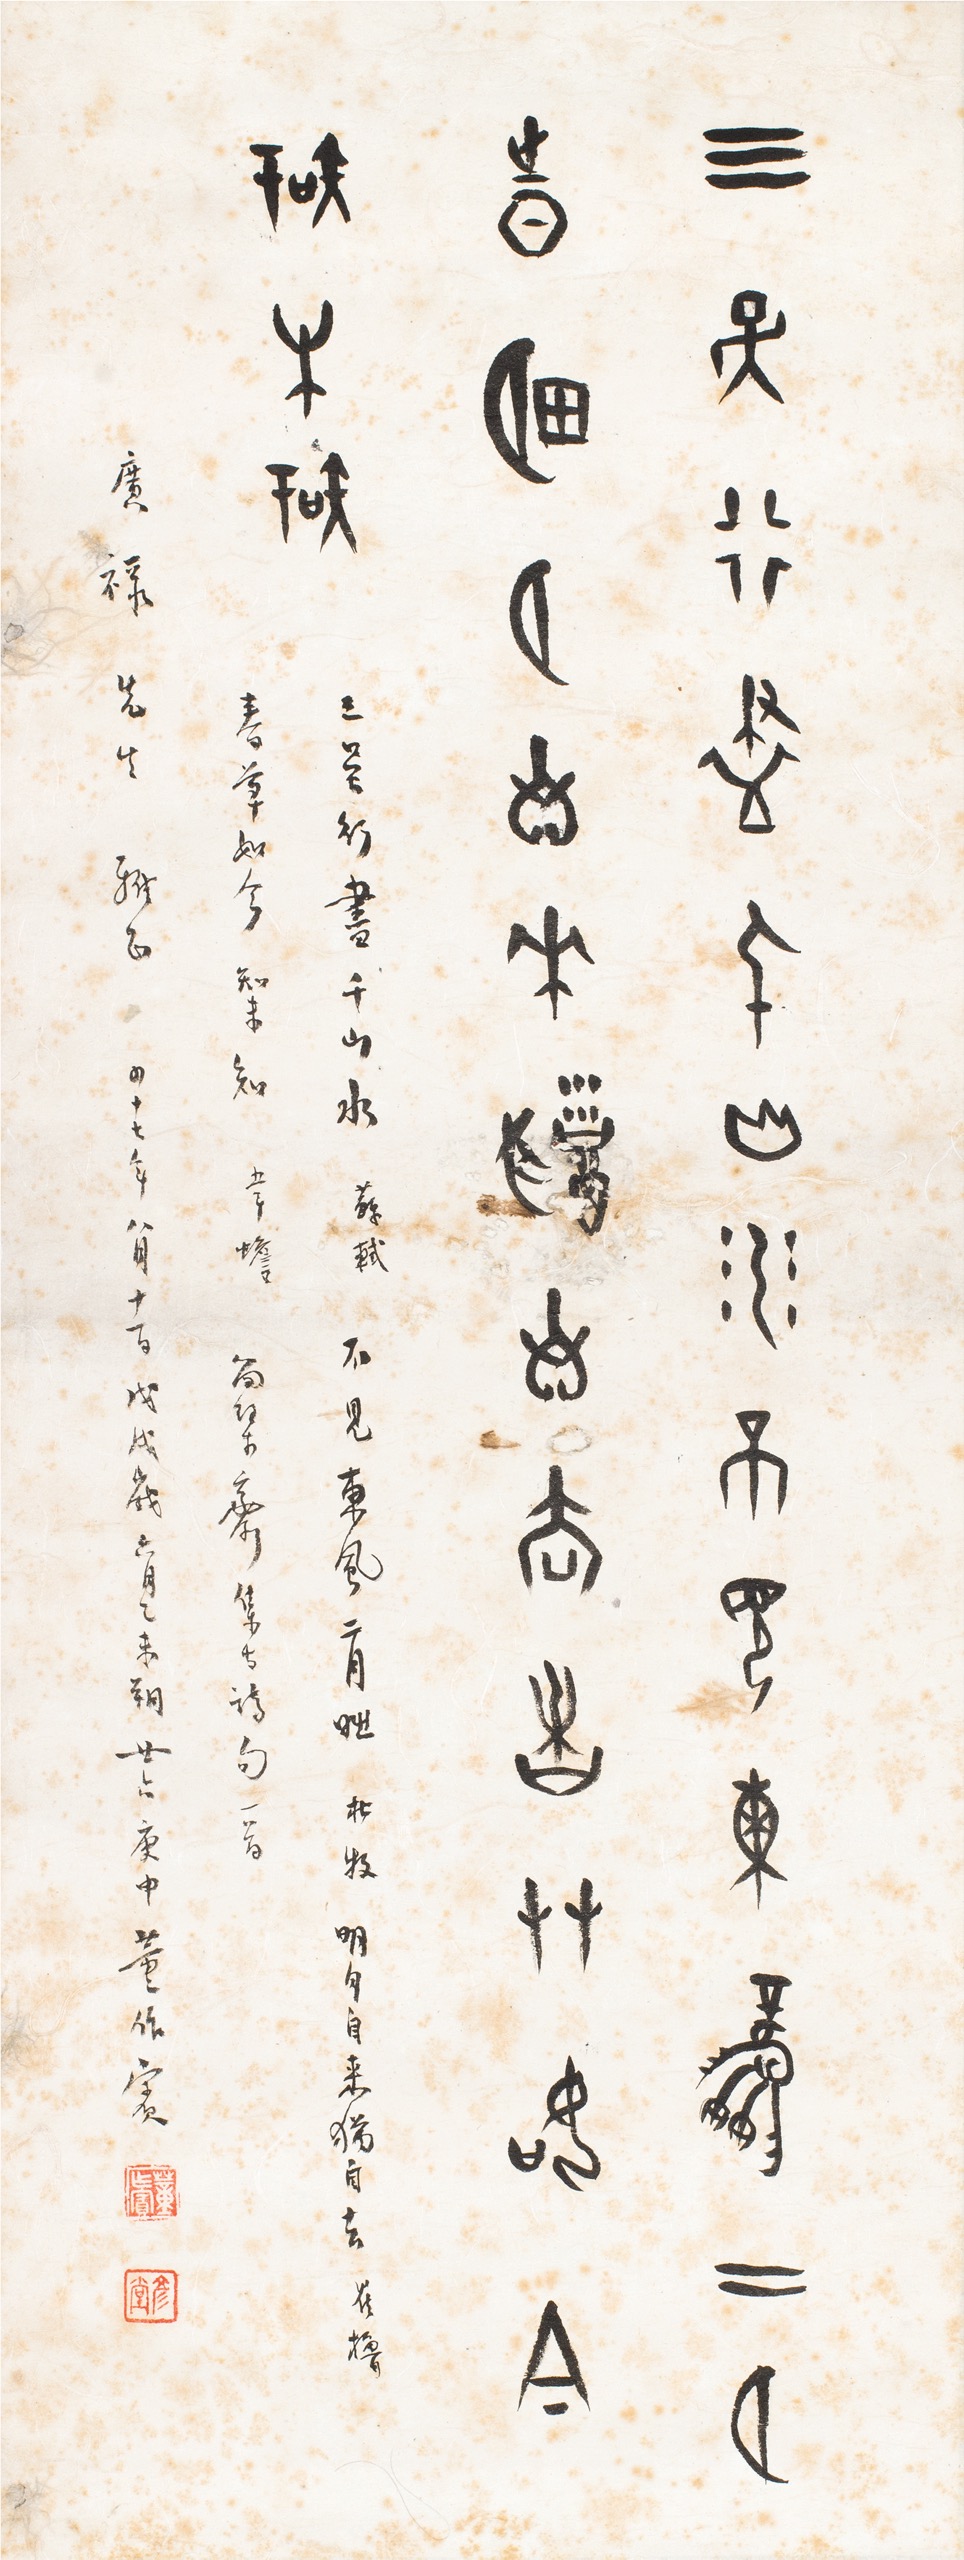 三吳行盡千山水不見東風二月
時明月自來猶自去春草如今
知未知
三吳行盡千山水 蘇軾 不見東風二月時 杜牧 明月自來猶自去 崔櫓
春草如今知未知 韋蟾 契齋集古詩句一首
廣祿先生 雅正 四十七年八月十一日戊戌歲六月乙未朔廿六庚申董作賓
董作賓
彥堂